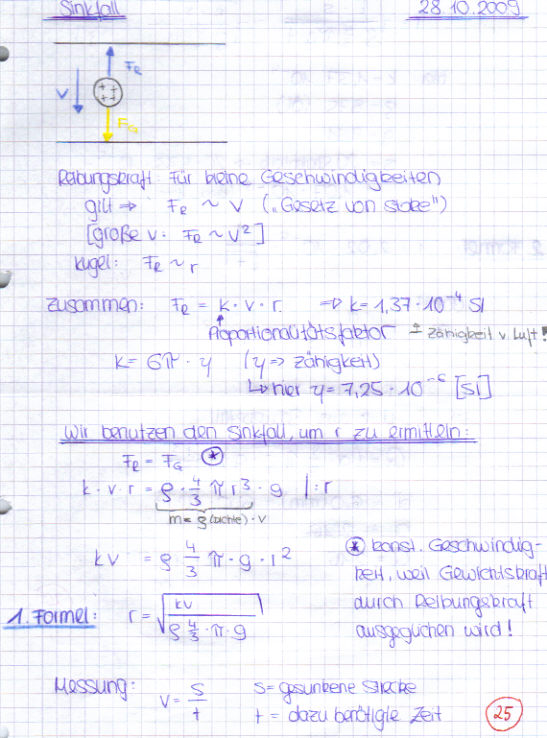 Sinkfall 28.10.2009
F_R
v
F_G
Reibungskraft: Für kleine Geschwindigkeiten
gilt ⇒ F_R ~ v („Gesetz von Stoke")
[große v: F_R ~ v²]
Kugel: F_R ~ r
Zusammen: F_R = k · v · r ⇒ k = 1,37 · 10⁻⁴ SI
Proportionalitätsfaktor ≙ Zähigkeit v Luft!
k = 6π · η (η ⇒ Zähigkeit)
↳ hier η = 7,25 · 10⁻⁶ [SI]
Wir benutzen den Sinkfall, um r zu ermitteln:
F_R = F_G ⊛
k · v · r = ρ · 4/3 π r³ · g |: r
m = ρ (Dichte) · V
kv = ρ 4/3 π · g · r²
⊛ konst. Geschwindig-
keit, weil Gewichtskraft
durch Reibungskraft
ausgeglichen wird!
1. Formel: r = √(kv / (ρ 4/3 · π · g))
Messung: v = s/t
s = gesunkene Strecke
t = dazu benötigte Zeit
25